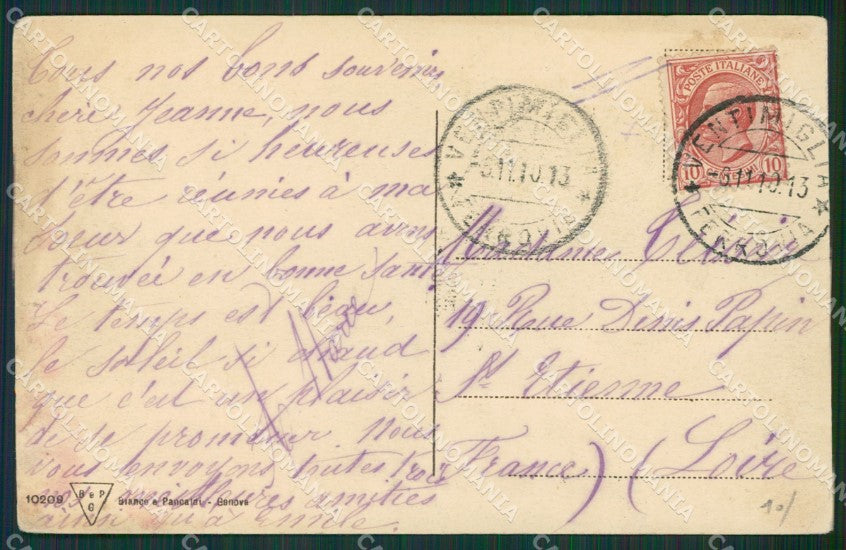 Tous nos bons souvenirs
chère Jeanne, nous
sommes si heureuses
d'être réunies à ma
sœur que nous avons
trouvée en bonne santé
Le temps est beau,
le soleil si chaud
que c'est un plaisir
de se promener. Nous
vous envoyons toutes trois
nos meilleures amitiés
ainsi qu'à Emile.
10209
B e P
G
Bianco e Pancaldi - Genova
POSTE ITALIANE
10 10
VENTIMIGLIA
11.10.13
FERROVIA
VENTIMIGLIA
11.10.13
FERROVIA
Madame
19 Rue Denis Papin
St Etienne
France) (Loire
10/
CARTOLINOMANIA